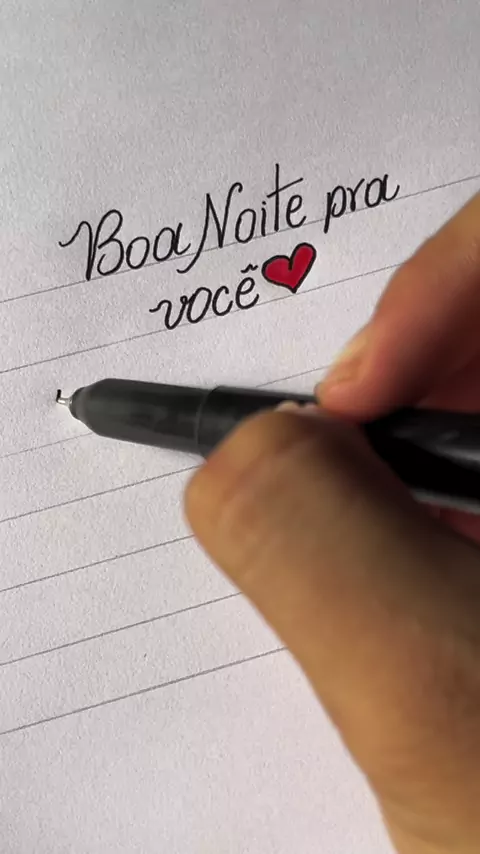 Boa Noite pra
você